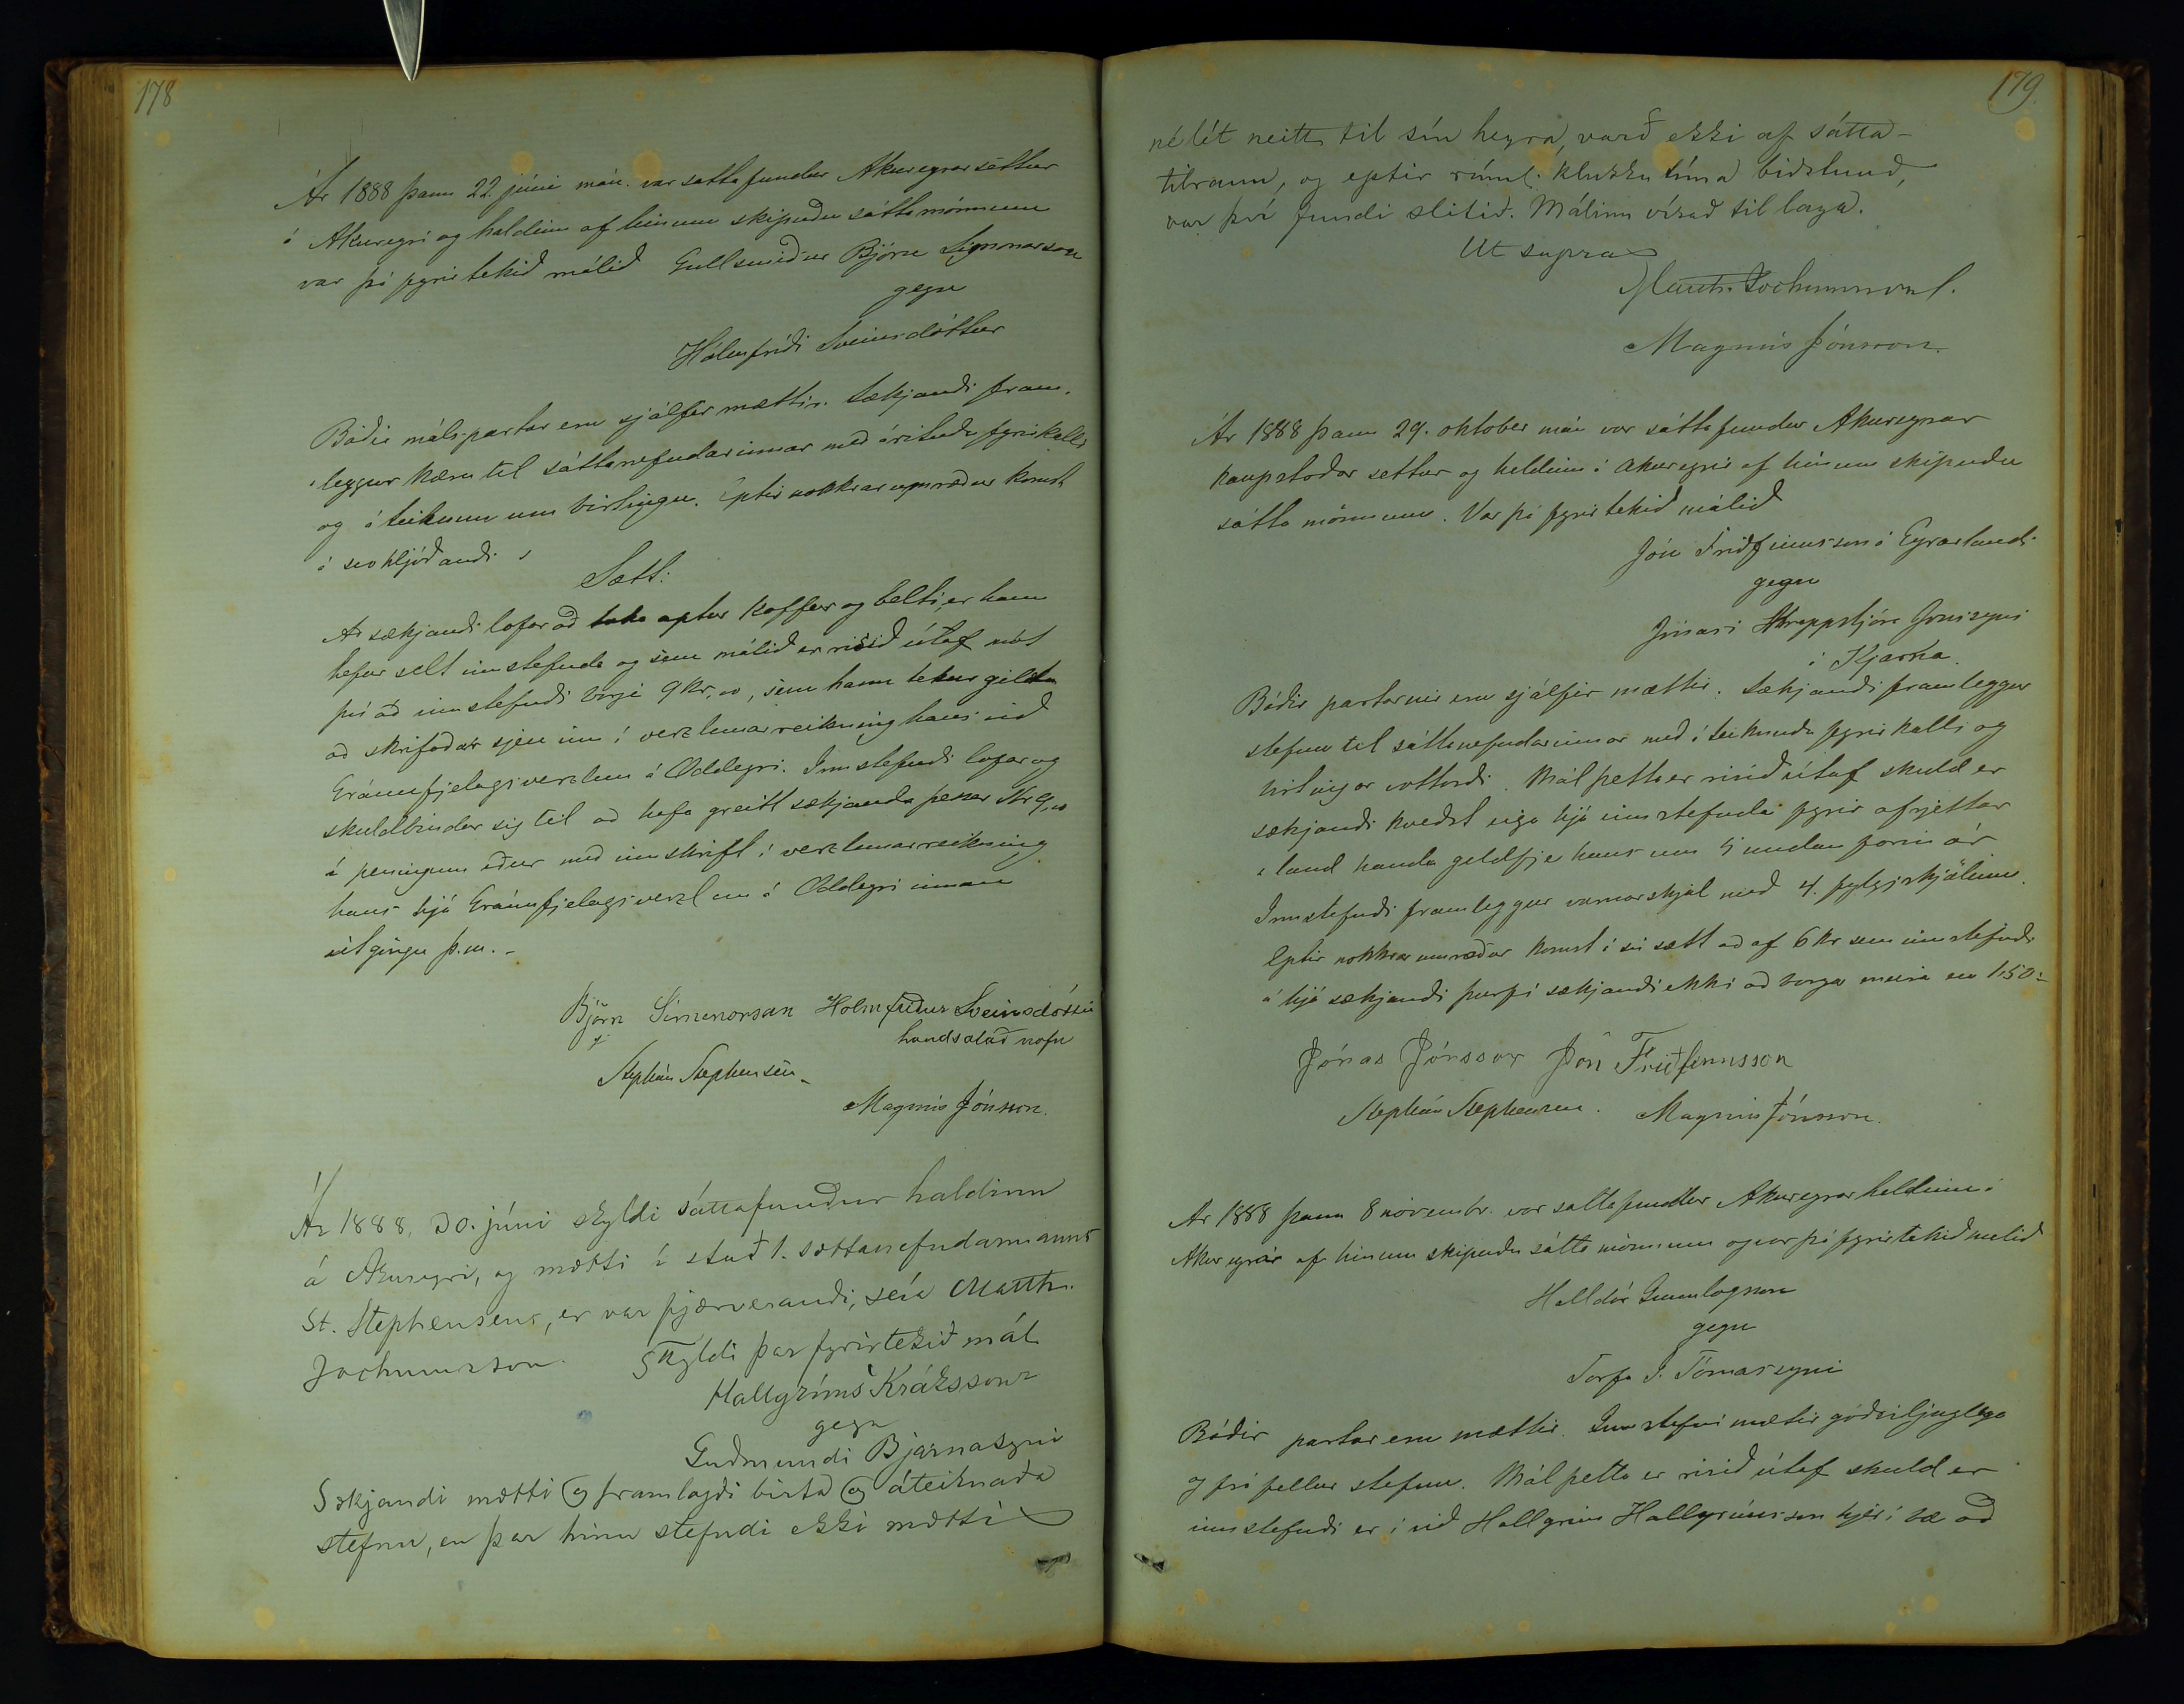 178
Ár 1888 þann 22. júni mán. var sattafundur Akureyrar settur
á Akureyri og haldinn af hinum skipuðu sáttamönnum
var þá fyrirtekið málið Gullsmiður Björn Sigmonarson
gegn
Hólmfríði Sveinsdóttur
Báðir málspartar eru sjálfir mættir. Sækjandi fram-
leggur kæru til sáttanefndarinnar með árituðu fyrirkalli
og áteiknun um birtingu. Eptir nokkrar umræður komst
á svohljóðandi
Sætt:
At sækjandi lofar að taka aptur koffur og belti, er hann
hefur selt innstefnda og sem málið er risið útaf mót
því að innstefndi borgi 9 kr. 00, sem hann tekur gilda
að skrifaðar sjeu inn í verzlunarreikning hans við
Gránufjelagsverzlun á Oddeyri. Innstefndi lofar og
skuldbindur sig til að hafa greitt sækjanda þessar Kr 9,00
í peningum eður með innskrift í verzlunarreikning
hans hjá Gránufjelagsverzlun á Oddeyri innan
útgöngu þ.m. -
Björn Simenorsan Holmfriður Sveinsdóttir
handsalað nafn
Stephán Stephensen
Magnús Jónsson.
Ár 1888, 30. júni skyldi sáttafundur haldinn
á Akureyri, og mætti í stað 1. sættanefndarmanns
St. Stephensens, er var fjærverandi, séra Matth.
Jochumsson. Skyldi þar fyrirtekið mál
Hallgríms Krákssonar
gegn
Guðmundi Bjarnasyni
Sækjandi mætti og framlagði birta og áteiknaða
stefnu, en þar hinn stefndi ekki mætti
179.
né lét neitt til sín heyra, varð ekki af sátta-
tilraun, og eptir rúml. klukkutíma biðstund,
var því fundi slitið. Málinu vísað til laga.
Ut supra
Matth. Jochumsson
Magnús Jónsson.
Ár 1888 þann 29. oktober mán var sáttafundur Akureyrar
kaupstaðar settur og haldinn í Akureyri af hinum skipuðu
sáttamönnum. Var þá fyrirtekið málið
Jón Friðfinnsson á Eyrarlandi
gegn
Jónasi Hreppstjóra Jónssyni
í Kjarna.
Báðir partarnir eru sjálfir mættir. Sækjandi framleggur
stefnu til sáttanefndarinnar með áteiknuðu fyrirkalli og
birtingar vottorði. Mál þetta er risið útaf skuld er
sækjandi kveðst eiga hjá innstefnda fyrir afrjettar
land handa geldfje hans um 5 undan farin ár
Innstefndi framleggur varnarskjal með 4. fylgiskjölum.
Eptir nokkrar umræður komst á sú sætt að af 6 kr sem innstefndi
á hjá sækjandi þurfi sækjandi ekki að borga meira en 1.50
Jónas Jónsson Jón Friðfinnsson
Stephán Stephensen. Magnús Jónsson.
Ár 1888 þann 8 novembr. var sáttafundur Akureyrar haldinn á
Akureyrar af hinum skipuðu sáttamönnum og var þá fyrirtekið malið
Halldór Gunnlogsson
gegn
Torfa J. Tómassyni
Báðir partar eru mættir. Innstefni mætir góðviljuglega
og frá fellur stefnu. Mál þetta er risið útaf skuld er
innstefndi er í við Hallgrím Hallgrímsson hjer í bæ að